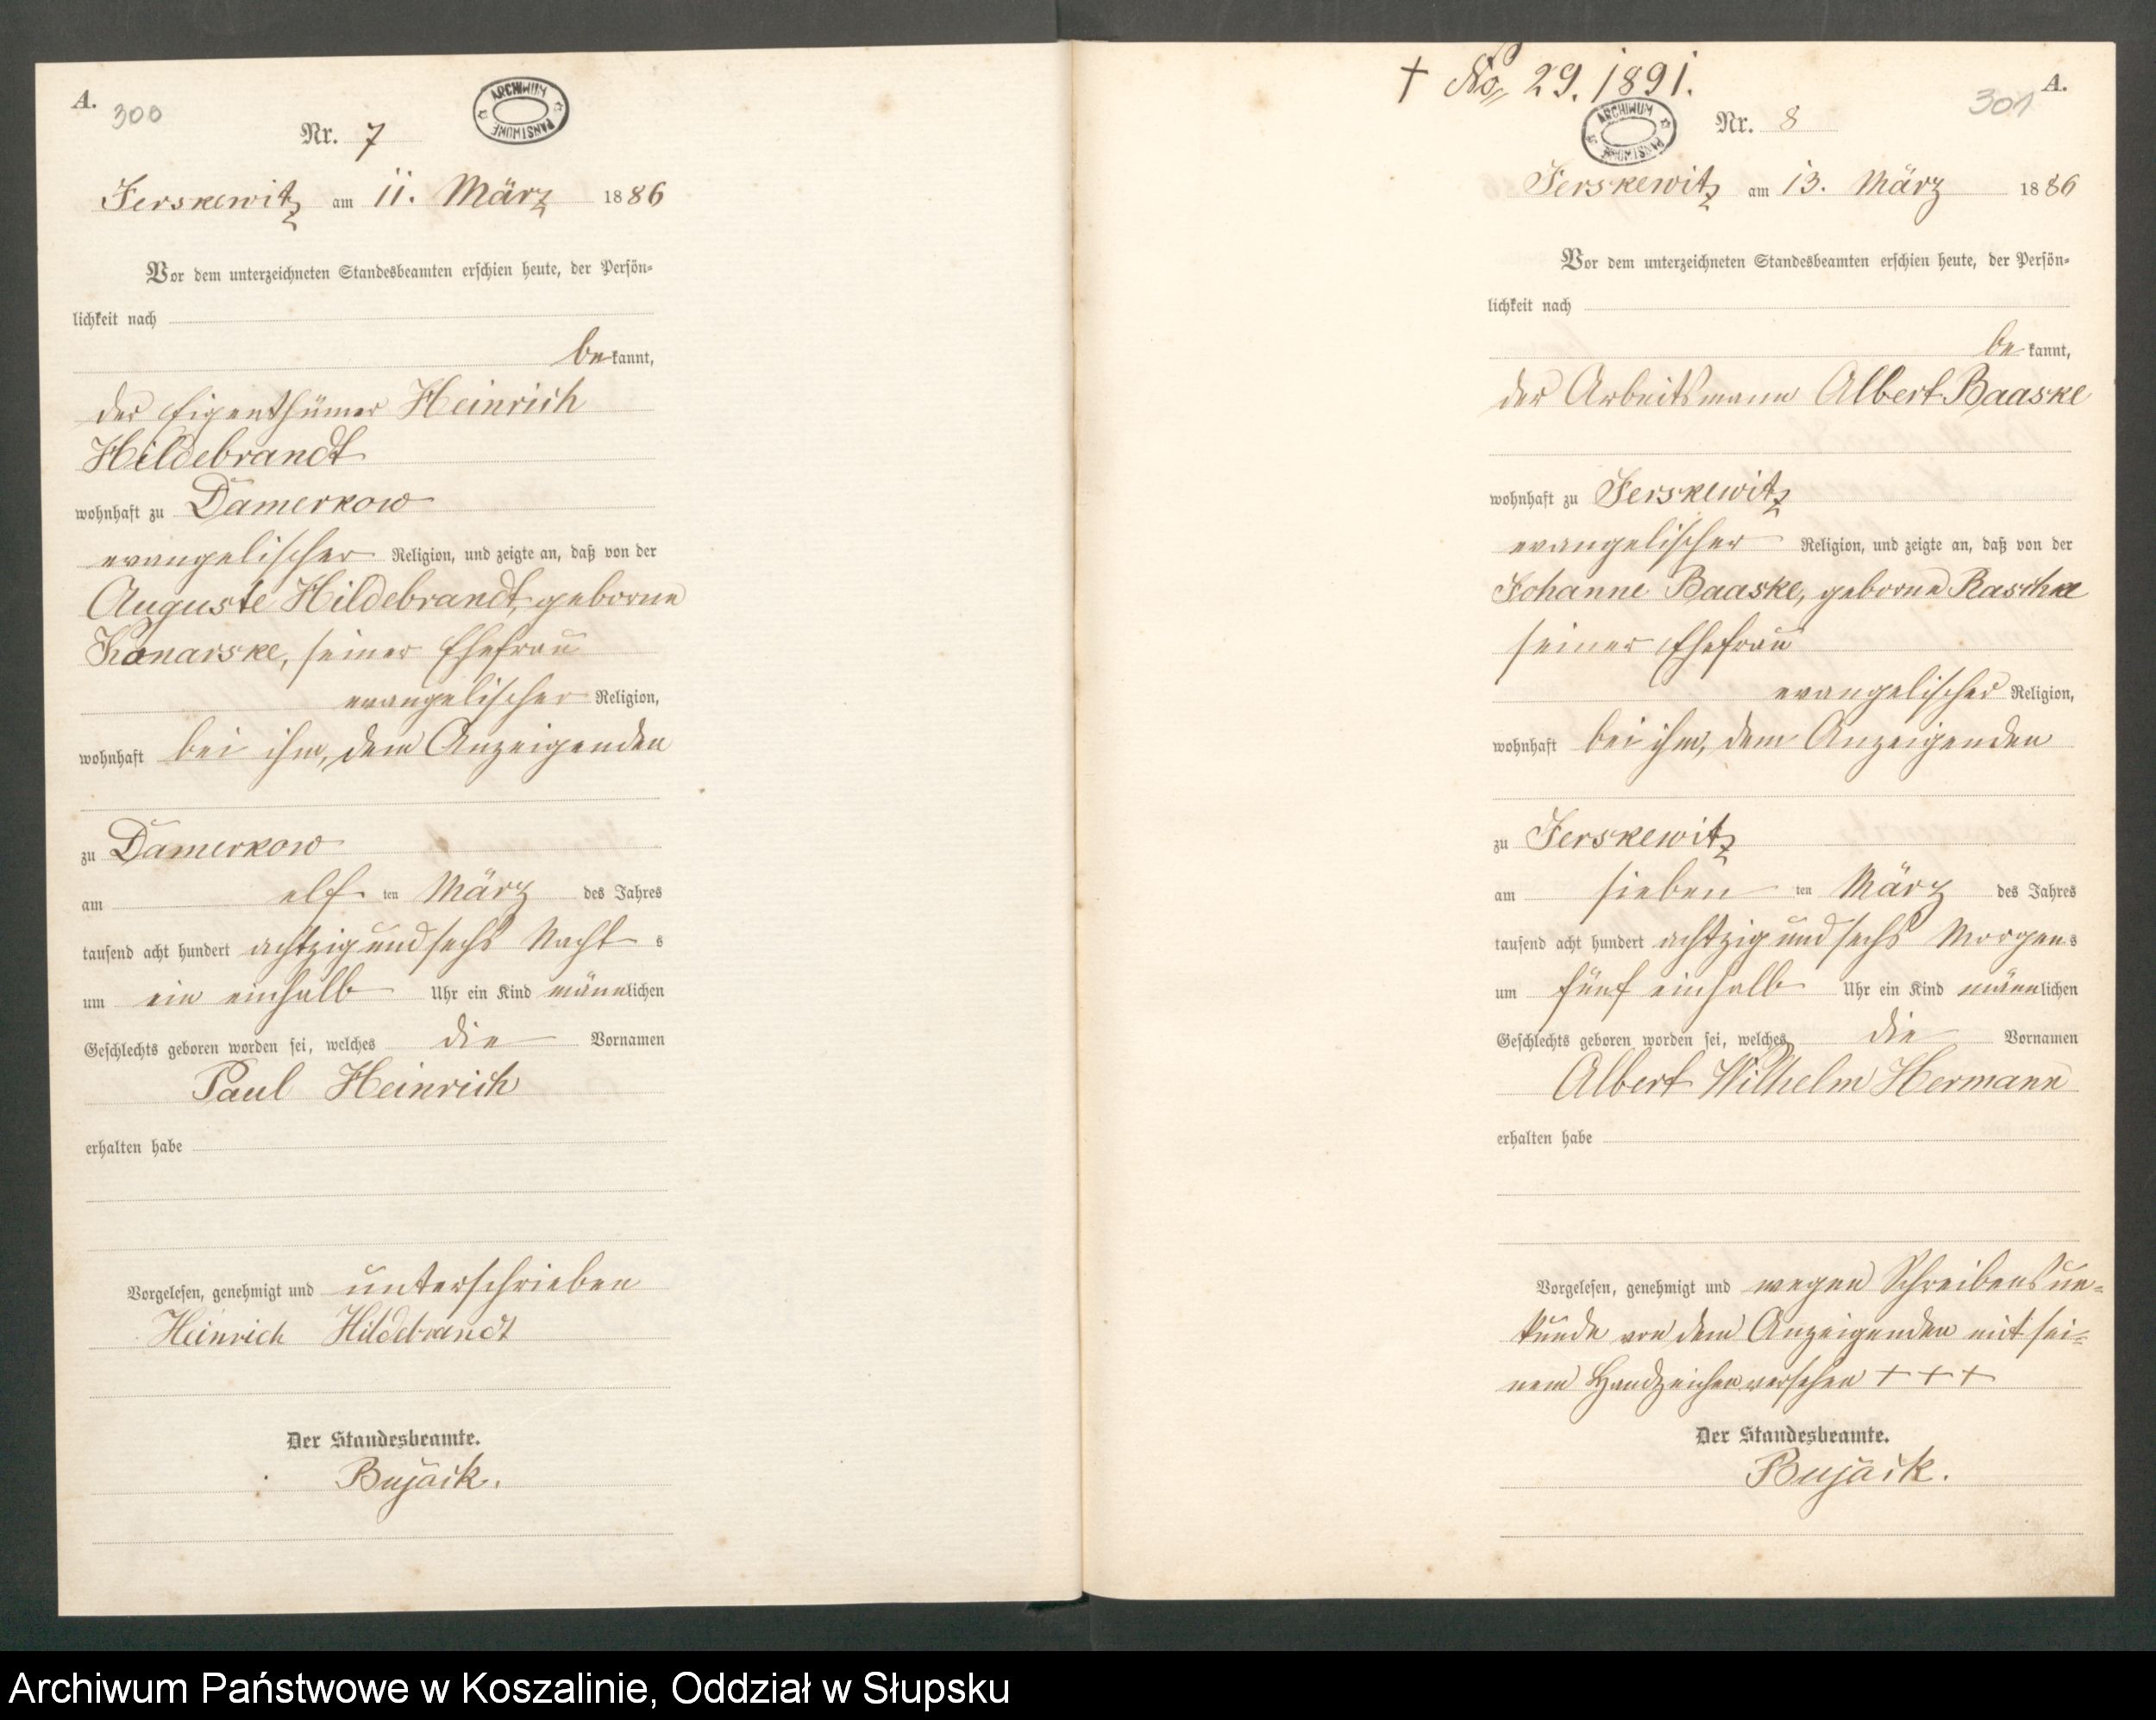 A.
300
ARCHIWUM PAŃSTWOWE
Nr. 7
Jerskewitz am 11. März 1886
Vor dem unterzeichneten Standesbeamten erschien heute, der Persön-
lichkeit nach
bekannt,
der Eigenthümer Heinrich
Hildebrandt
wohnhaft zu Damerkow
evangelischer Religion, und zeigte an, daß von der
Auguste Hildebrandt, geborne
Konarske, seiner Ehefrau
evangelischer Religion,
wohnhaft bei ihm, dem Anzeigenden
zu Damerkow
am elf ten März des Jahres
tausend acht hundert achtzig und sechs Nacht s
um ein einhalb Uhr ein Kind männlichen
Geschlechts geboren worden sei, welches die Vornamen
Paul Heinrich
erhalten habe
Vorgelesen, genehmigt und unterschrieben
Heinrich Hildebrandt
Der Standesbeamte.
Bujack.
† No 29. 1891.
A.
301
ARCHIWUM PAŃSTWOWE
Nr. 8
Jerskewitz am 13. März 1886
Vor dem unterzeichneten Standesbeamten erschien heute, der Persön-
lichkeit nach
bekannt,
der Arbeitsmann Albert Baaske
wohnhaft zu Jerskewitz
evangelischer Religion, und zeigte an, daß von der
Johanne Baaske, geborne Raschke
seiner Ehefrau
evangelischer Religion,
wohnhaft bei ihm, dem Anzeigenden
zu Jerskewitz
am sieben ten März des Jahres
tausend acht hundert achtzig und sechs Morgens
um fünf einhalb Uhr ein Kind männlichen
Geschlechts geboren worden sei, welches die Vornamen
Albert Wilhelm Hermann
erhalten habe
Vorgelesen, genehmigt und wegen Schreibensun-
kunde von dem Anzeigenden mit sei-
nem Handzeichen versehen + + +
Der Standesbeamte.
Bujack.
Archiwum Państwowe w Koszalinie, Oddział w Słupsku